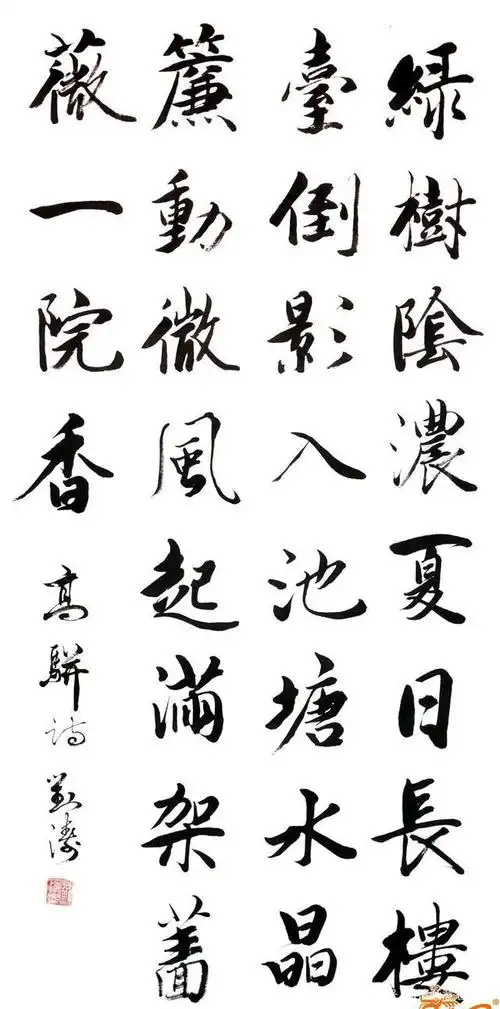 綠樹陰濃夏日長樓
臺倒影入池塘水晶
簾動微風起滿架薔
薇一院香
高駢詩 劉濤